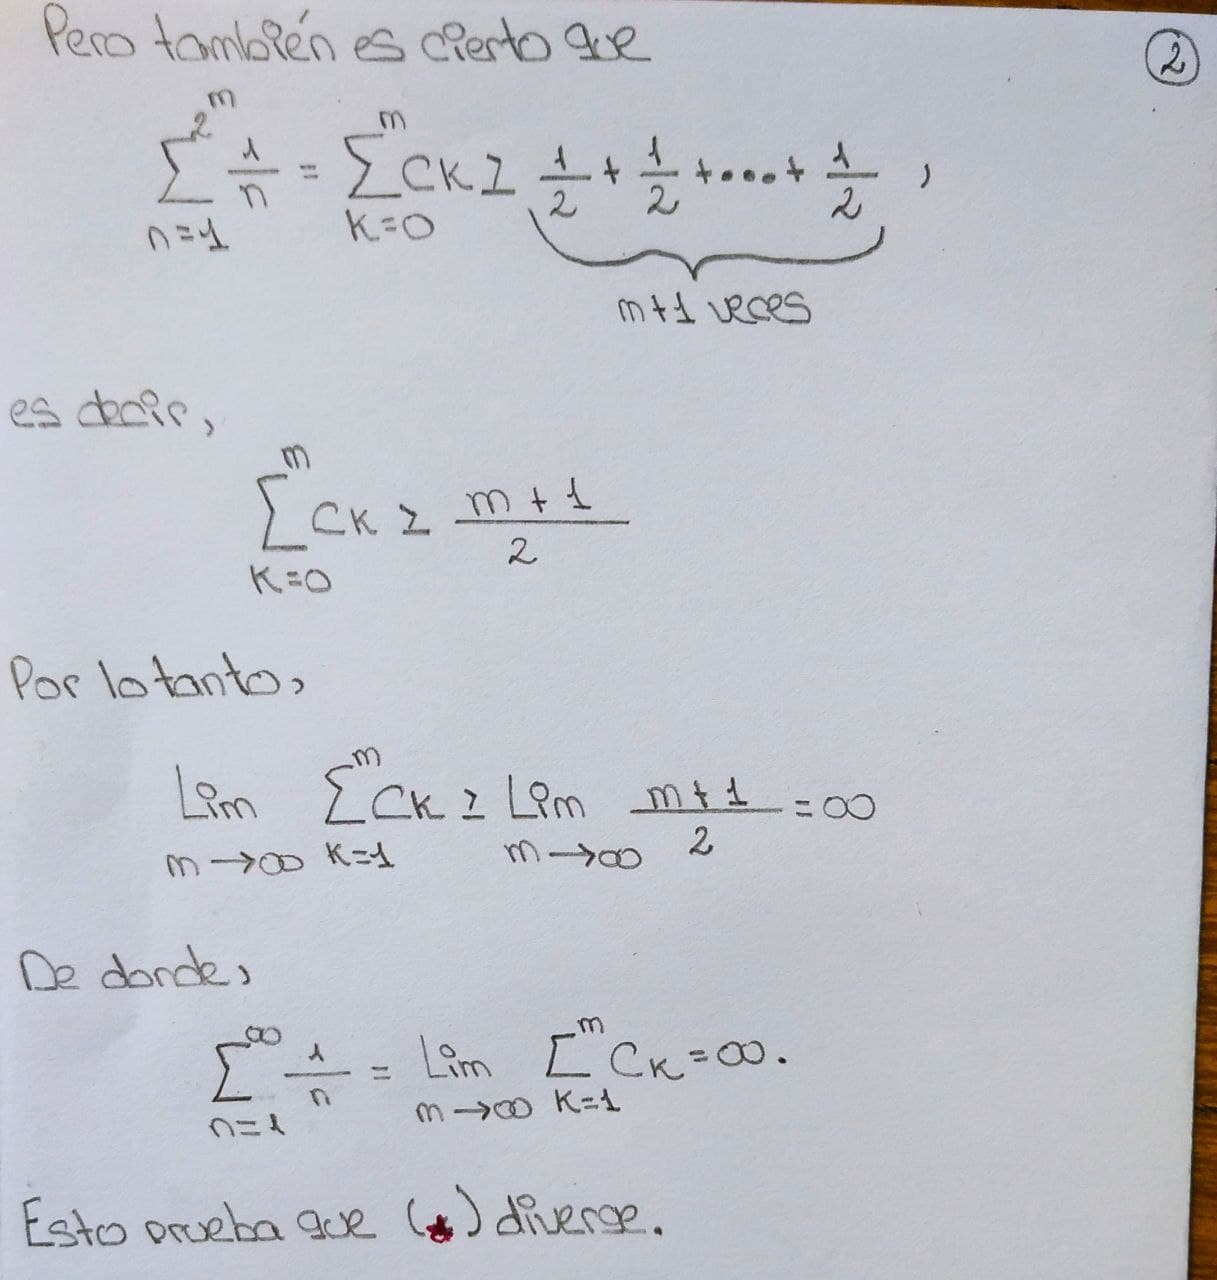 Pero también es cierto que
②
∑_{n=1}^{2^m} 1/n = ∑_{K=0}^{m} C_K ≥ 1/2 + 1/2 + .... + 1/2 ,
m+1 veces
es decir,
∑_{K=0}^{m} C_K ≥ (m+1)/2
Por lo tanto,
Lim_{m→∞} ∑_{K=1}^{m} C_K ≥ Lim_{m→∞} (m+1)/2 = ∞
De donde,
∑_{n=1}^{∞} 1/n = Lim_{m→∞} ∑_{K=1}^{m} C_K = ∞.
Esto prueba que (★) diverge.